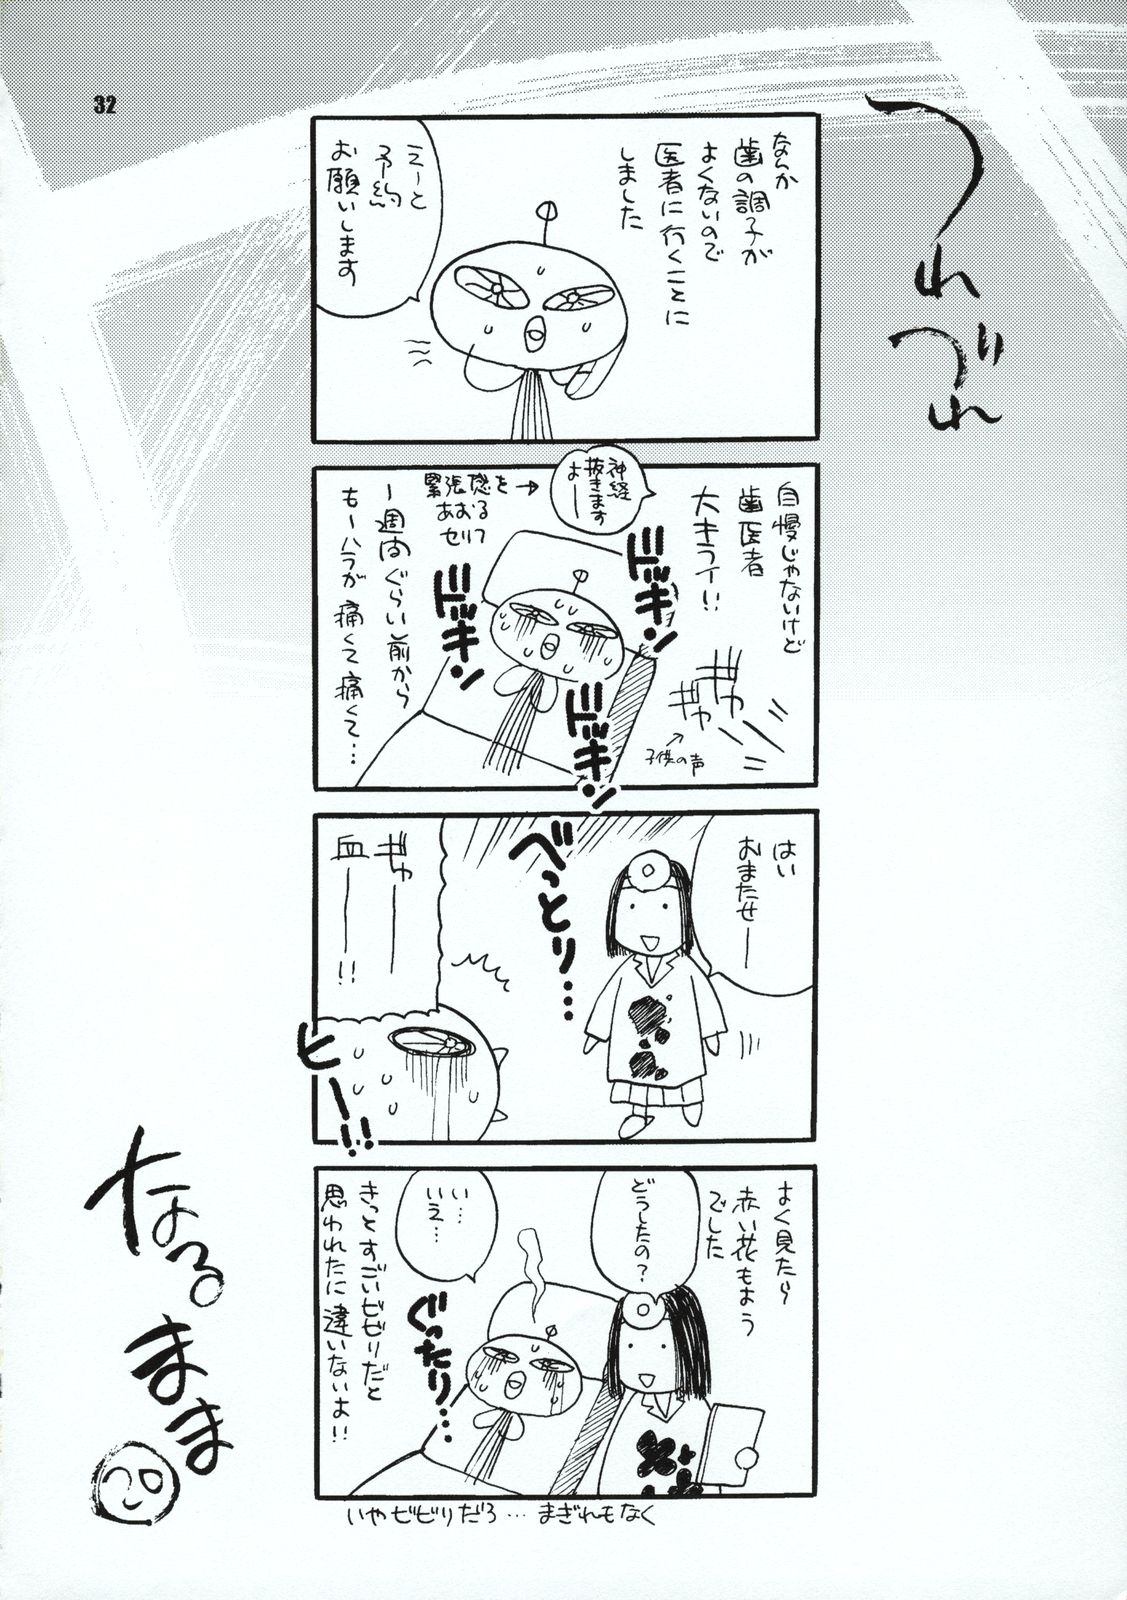 32
つれづれ
なんか
歯の調子が
よくないので
医者に行くことに
しました
えーと
予約
お願いします
自慢じゃないけど
歯医者
大キライ!!
神経
抜きます
よー
緊張感を→
あおる
セリフ
ドッキン
ドッキン
ドッキン
ギャー
ギャー
子供の声
一週間ぐらい前から
もーハラが痛くて痛くて…
はい
おまたせー
べっとり…
ギャーー
血ーー!!
ヒーー!!
よく見たら
赤い花もよう
でした
どうしたの?
い…
いえ…
ぐったり…
きっとすごいビビリだと
思われたに違いないよ!!
いやビビリだろ…まぎれもなく
なるまま
20